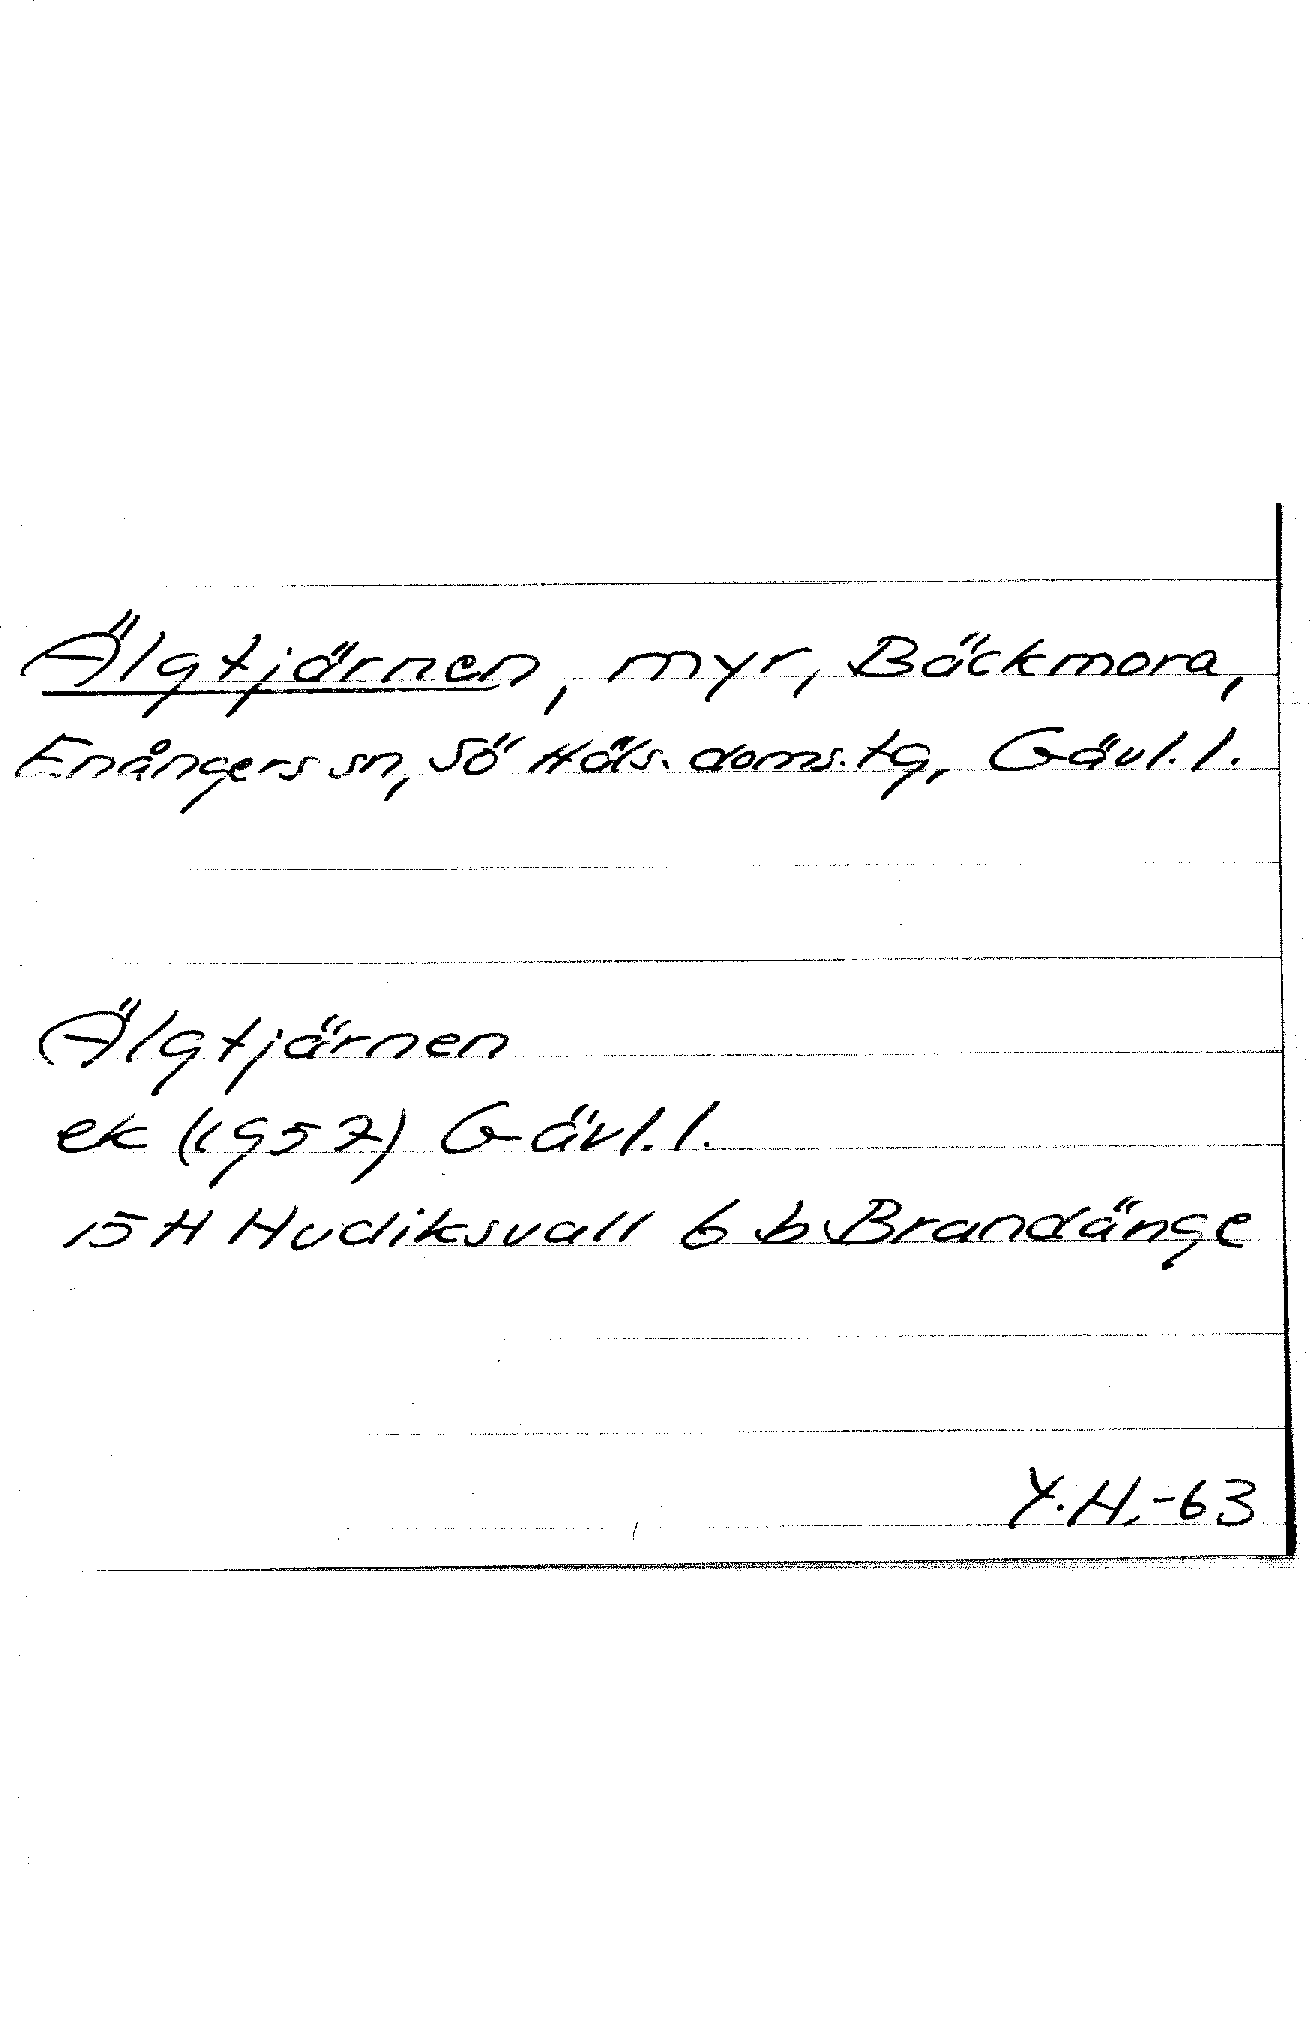 Älgtjärnen, myr, Bäckmora,
Enångers sn, Sö Häls. doms. tg, Gävl. l.
Älgtjärnen
ek (1957) Gävl. l.
15 H Hudiksvall 6 b Brandänge
Y. H. -63